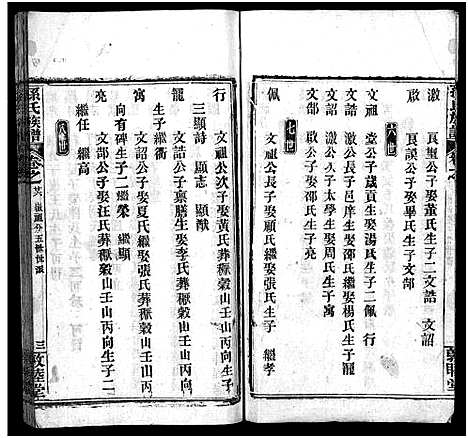 激 良望公子娶董氏生子二文誥 文詔
啟 良謨公子娶畢氏生子文部
六世
文祖 堂公子歲貢生娶湯氏生子二佩 行
文誥 激公長子邑庠生娶鄧氏繼娶楊氏生子龍
文詔 激公次子太學生娶周氏生子寓
文部 啟公子娶邱氏生子亮
七世
佩 文祖公長子娶顧氏繼娶張氏生子 繼孝
孫氏族譜
卷之
其 祖祖分五 世派
三 敦睦堂
行 文祖公次子娶黃氏葬稬穀山壬山丙向生子
三顯詩 顯志 顯猷
龍 文誥公子稟膳生娶李氏葬稬穀山壬山丙向
生子繼衢
寓 文詔公子娶夏氏繼娶張氏葬稬穀山壬山丙
向有碑生子二繼榮 繼顯
亮 文部公子娶汪氏葬稬穀山壬山丙向生子二
繼任 繼高
八世